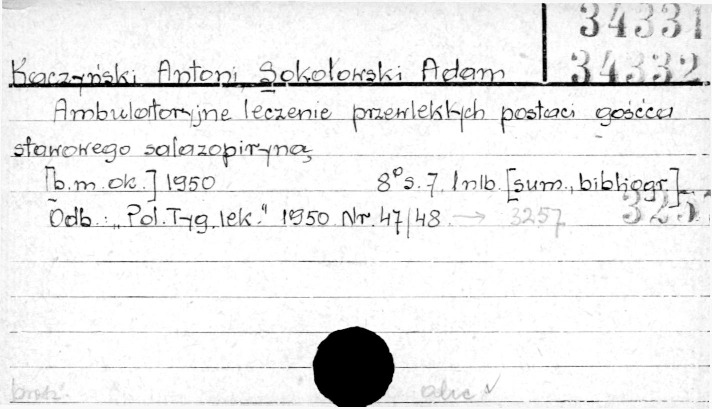 34331
34332
Kaczyński Antoni, Sokołowski Adam
Ambulatoryjne leczenie przewlekłych postaci gośćca
stawowego salazopiryną
[b.m.ok.] 1950 8° s. 7, 1 nlb. [sum., bibliogr.]
Odb.: „Pol. Tyg. lek." 1950 Nr. 47/48 → 3257
325